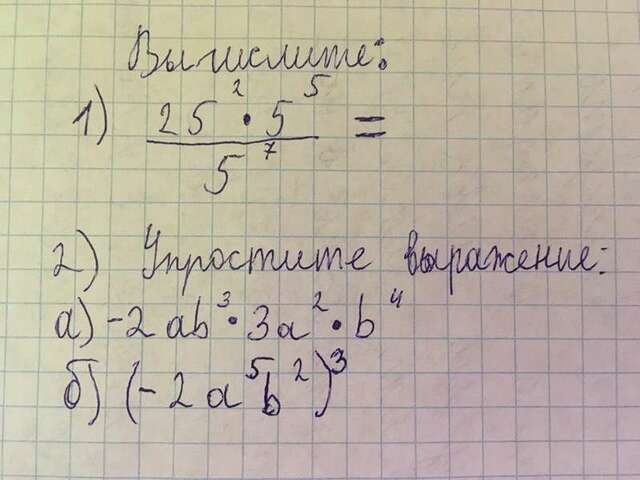 Вычислите:
1) 25² · 5⁵ / 5⁷ =
2) Упростите выражение:
а) -2ab³ · 3a² · b⁴
б) (-2a⁵b²)³